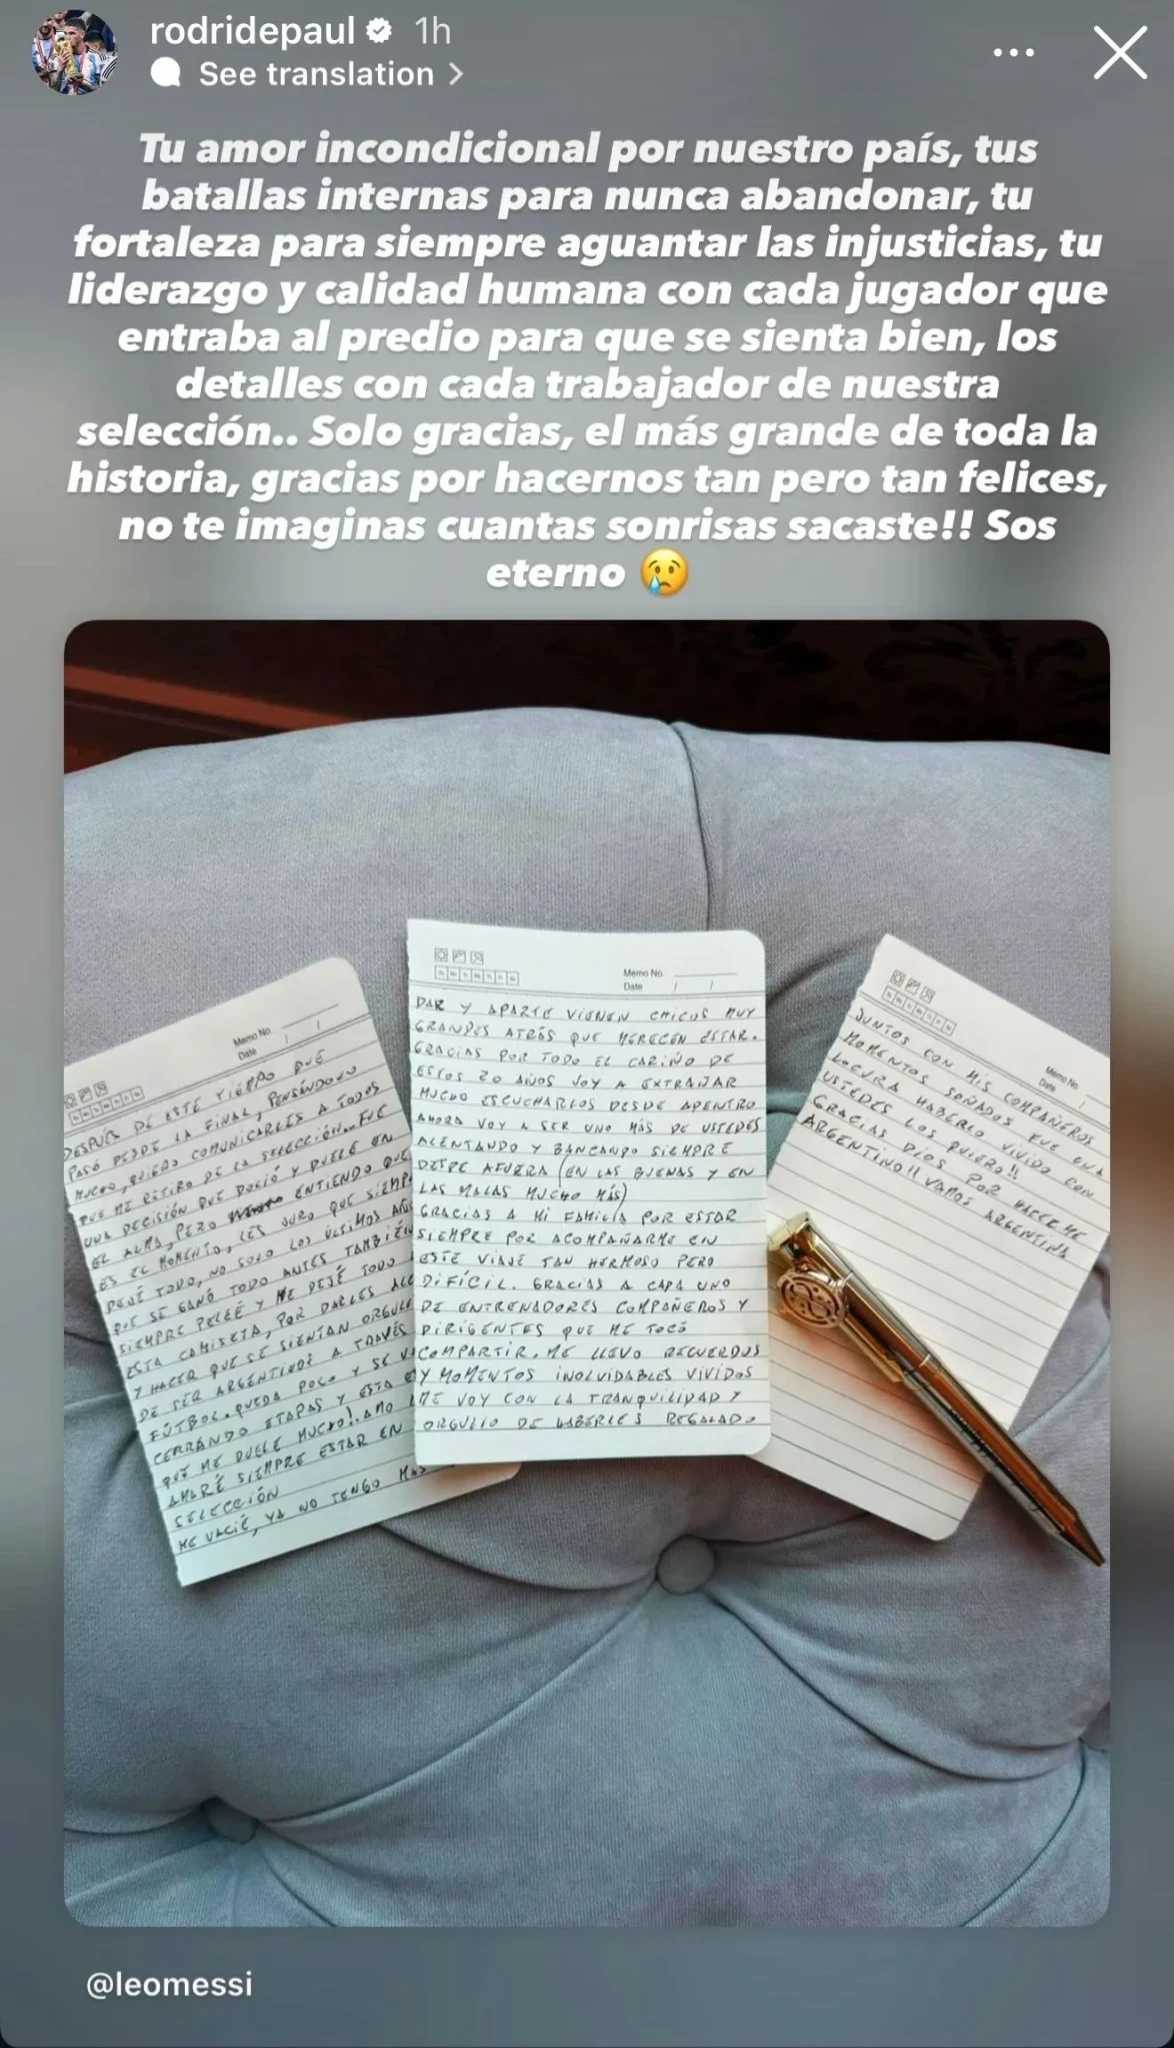 rodridepaul 1h
See translation
Tu amor incondicional por nuestro país, tus
batallas internas para nunca abandonar, tu
fortaleza para siempre aguantar las injusticias, tu
liderazgo y calidad humana con cada jugador que
entraba al predio para que se sienta bien, los
detalles con cada trabajador de nuestra
selección.. Solo gracias, el más grande de toda la
historia, gracias por hacernos tan pero tan felices,
no te imaginas cuantas sonrisas sacaste!! Sos
eterno 😢
Memo No.
Date / /
DESPUÉS DE ESTE TIEMPO QUE
PASÓ DESDE LA FINAL, PENSÁNDOLO
MUCHO, QUIERO COMUNICARLES A TODOS
QUE ME RETIRO DE LA SELECCIÓN.. FUE
UNA DECISIÓN QUE DOLIÓ Y DUELE EN
EL ALMA, PERO ENTIENDO QUE
ES EL MOMENTO, LES JURO QUE SIEMP
DEJÉ TODO, NO SOLO LOS ÚLTIMOS AÑO
QUE SE GANÓ TODO ANTES TAMBIÉN
SIEMPRE PELEÉ Y ME DEJÉ TODO
ESTA CAMISETA, POR DARLES ALE
Y HACER QUE SE SIENTAN ORGULL
DE SER ARGENTINOS A TRAVÉS
FÚTBOL. QUEDA POCO Y SE V
CERRANDO ETAPAS Y ESTA E
QUE ME DUELE MUCHO! AMO
AMARÉ SIEMPRE ESTAR EN
SELECCIÓN
ME VACIÉ, YA NO TENGO MAS
Memo No.
Date / /
DAR Y APARTE VIENEN CHICOS MUY
GRANDES ATRÁS QUE MERECEN ESTAR.
GRACIAS POR TODO EL CARIÑO DE
ESTOS 20 AÑOS VOY A EXTRAÑAR
MUCHO ESCUCHARLOS DESDE ADENTRO
AHORA VOY A SER UNO MÁS DE USTEDES
ALENTANDO Y BANCANDO SIEMPRE
DESDE AFUERA (EN LAS BUENAS Y EN
LAS MALAS MUCHO MÁS)
GRACIAS A MI FAMILIA POR ESTAR
SIEMPRE POR ACOMPAÑARME EN
ESTE VIAJE TAN HERMOSO PERO
DIFÍCIL. GRACIAS A CADA UNO
DE ENTRENADORES COMPAÑEROS Y
DIRIGENTES QUE ME TOCÓ
COMPARTIR. ME LLEVO RECUERDOS
Y MOMENTOS INOLVIDABLES VIVIDOS
ME VOY CON LA TRANQUILIDAD Y
ORGULLO DE HABERLES REGALADO
Memo No.
Date /
JUNTOS CON MIS COMPAÑEROS
MOMENTOS SOÑADOS FUE UNA
LOCURA HABERLO VIVIDO CON
USTEDES LOS QUIERO!!
GRACIAS DIOS POR HACERME
ARGENTINO!! VAMOS ARGENTINA
@leomessi